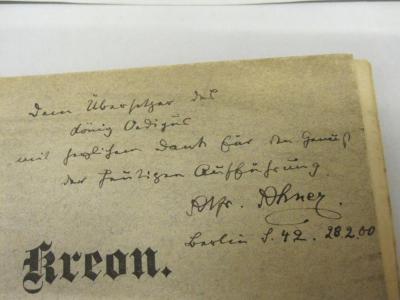 Dem Übersetzer des
König Oedipus
mit herzlichem Dank für den Genuß
der heutigen Aufführung.
Berlin S. 42. 28 2.00
Kreon.